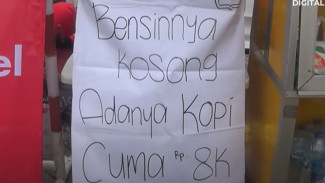 DIGITAL
Bensinnya
Kosong
Adanya Kopi
Cuma Rp. 8K
el